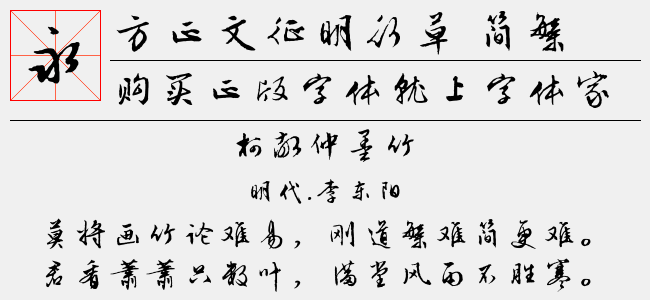 永
方正文征明行草 简繁
购买正版字体就上字体家
柯敬仲墨竹
明代.李东阳
莫将画竹论难易，刚道繁难简更难。
君看萧萧只数叶，满堂风雨不胜寒。